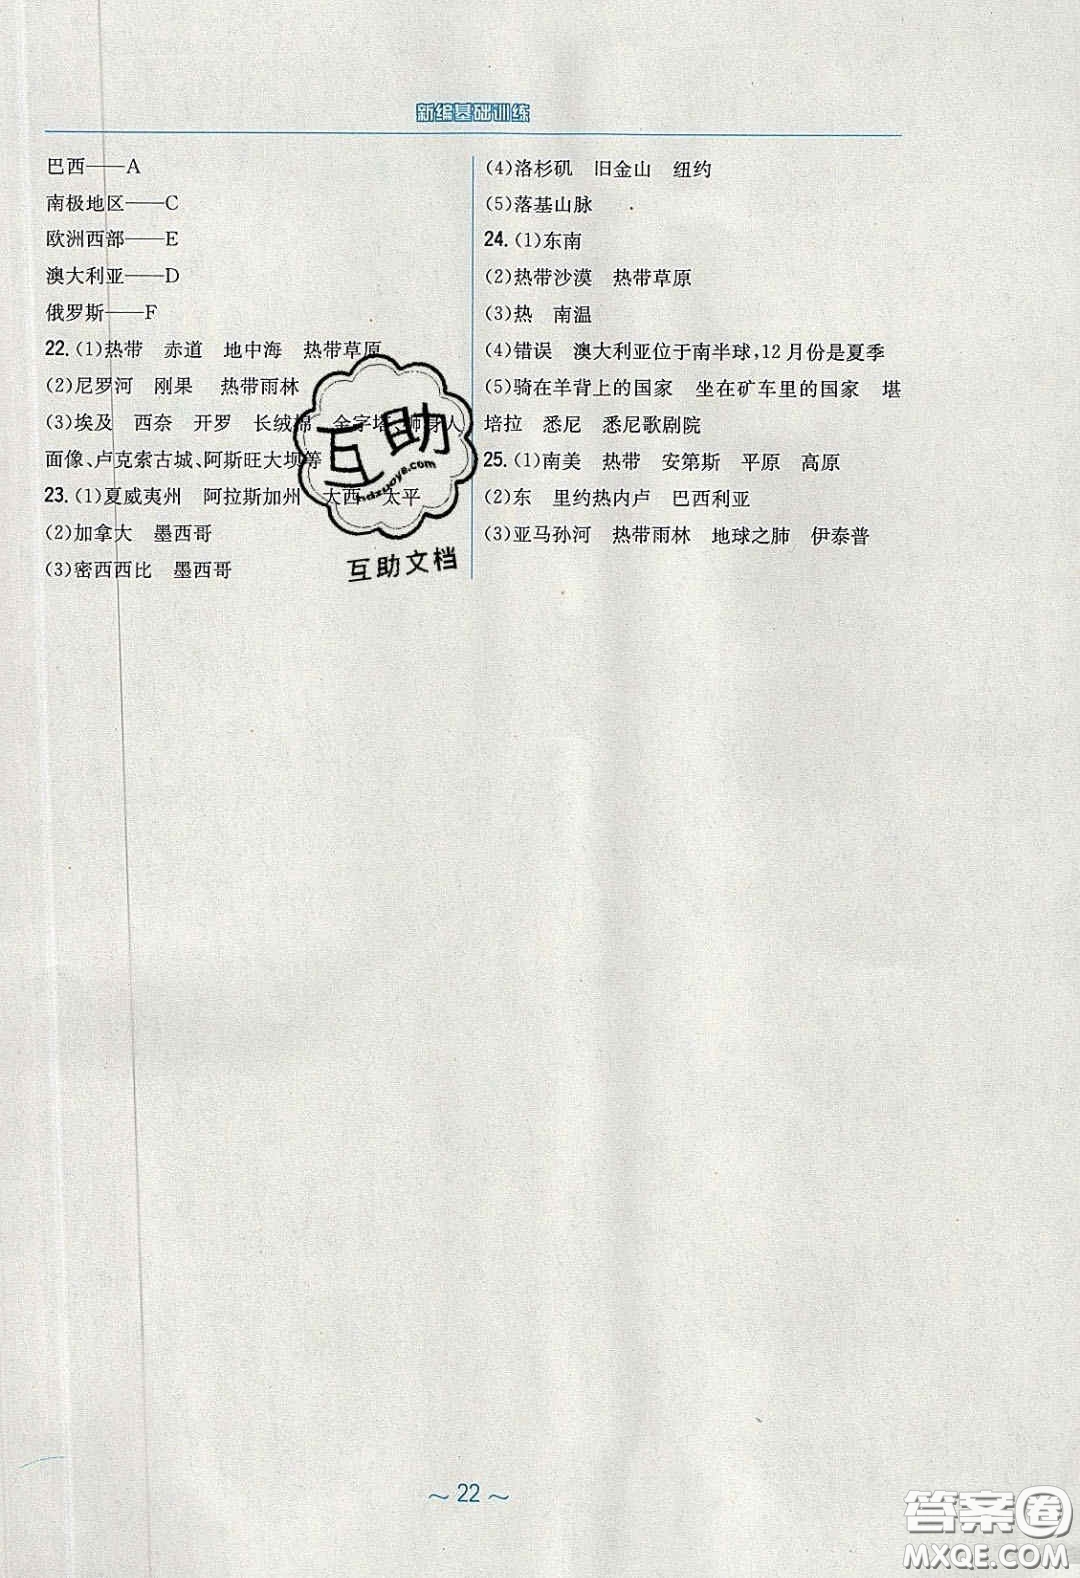 新编基础训练
巴西——A
南极地区——C
欧洲西部——E
澳大利亚——D
俄罗斯——F
22. (1)热带 赤道 地中海 热带草原
(2)尼罗河 刚果 热带雨林
(3)埃及 西奈 开罗 长绒棉 金字塔、狮身人
面像、卢克索古城、阿斯旺大坝等
23. (1)夏威夷州 阿拉斯加州 大西 太平
(2)加拿大 墨西哥
(3)密西西比 墨西哥
(4)洛杉矶 旧金山 纽约
(5)落基山脉
24. (1)东南
(2)热带沙漠 热带草原
(3)热 南温
(4)错误 澳大利亚位于南半球,12月份是夏季
(5)骑在羊背上的国家 坐在矿车里的国家 堪
培拉 悉尼 悉尼歌剧院
25. (1)南美 热带 安第斯 平原 高原
(2)东 里约热内卢 巴西利亚
(3)亚马孙河 热带雨林 地球之肺 伊泰普
互助
hdzuoye.com
互助文档
～22～
答案圈
MXQE.COM